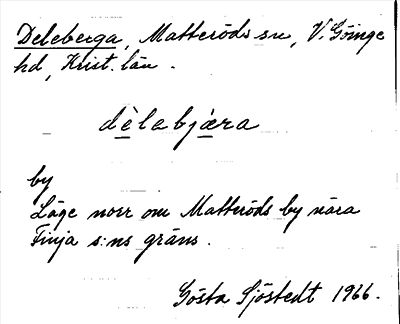 Deleberga, Matteröds sn, V. Göinge
hd, Krist. län.
dèlebjæra
by
Läge norr om Matteröds by nära
Finja s:ns gräns.
Gösta Sjöstedt 1966.